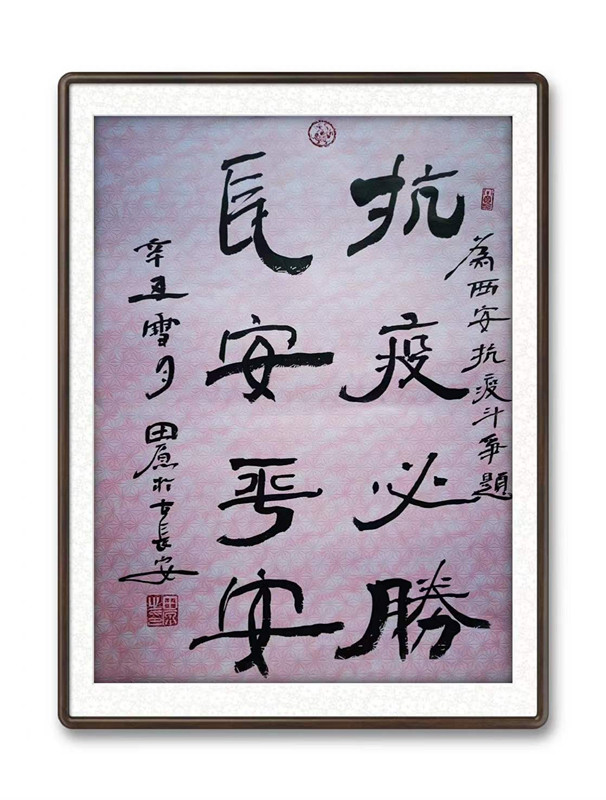 為西安抗疫斗爭題
抗疫必勝
長安平安
辛丑雪月 田原於古長安
田原之印